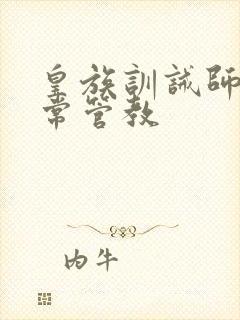 皇族訓誡師
常管教
内牛